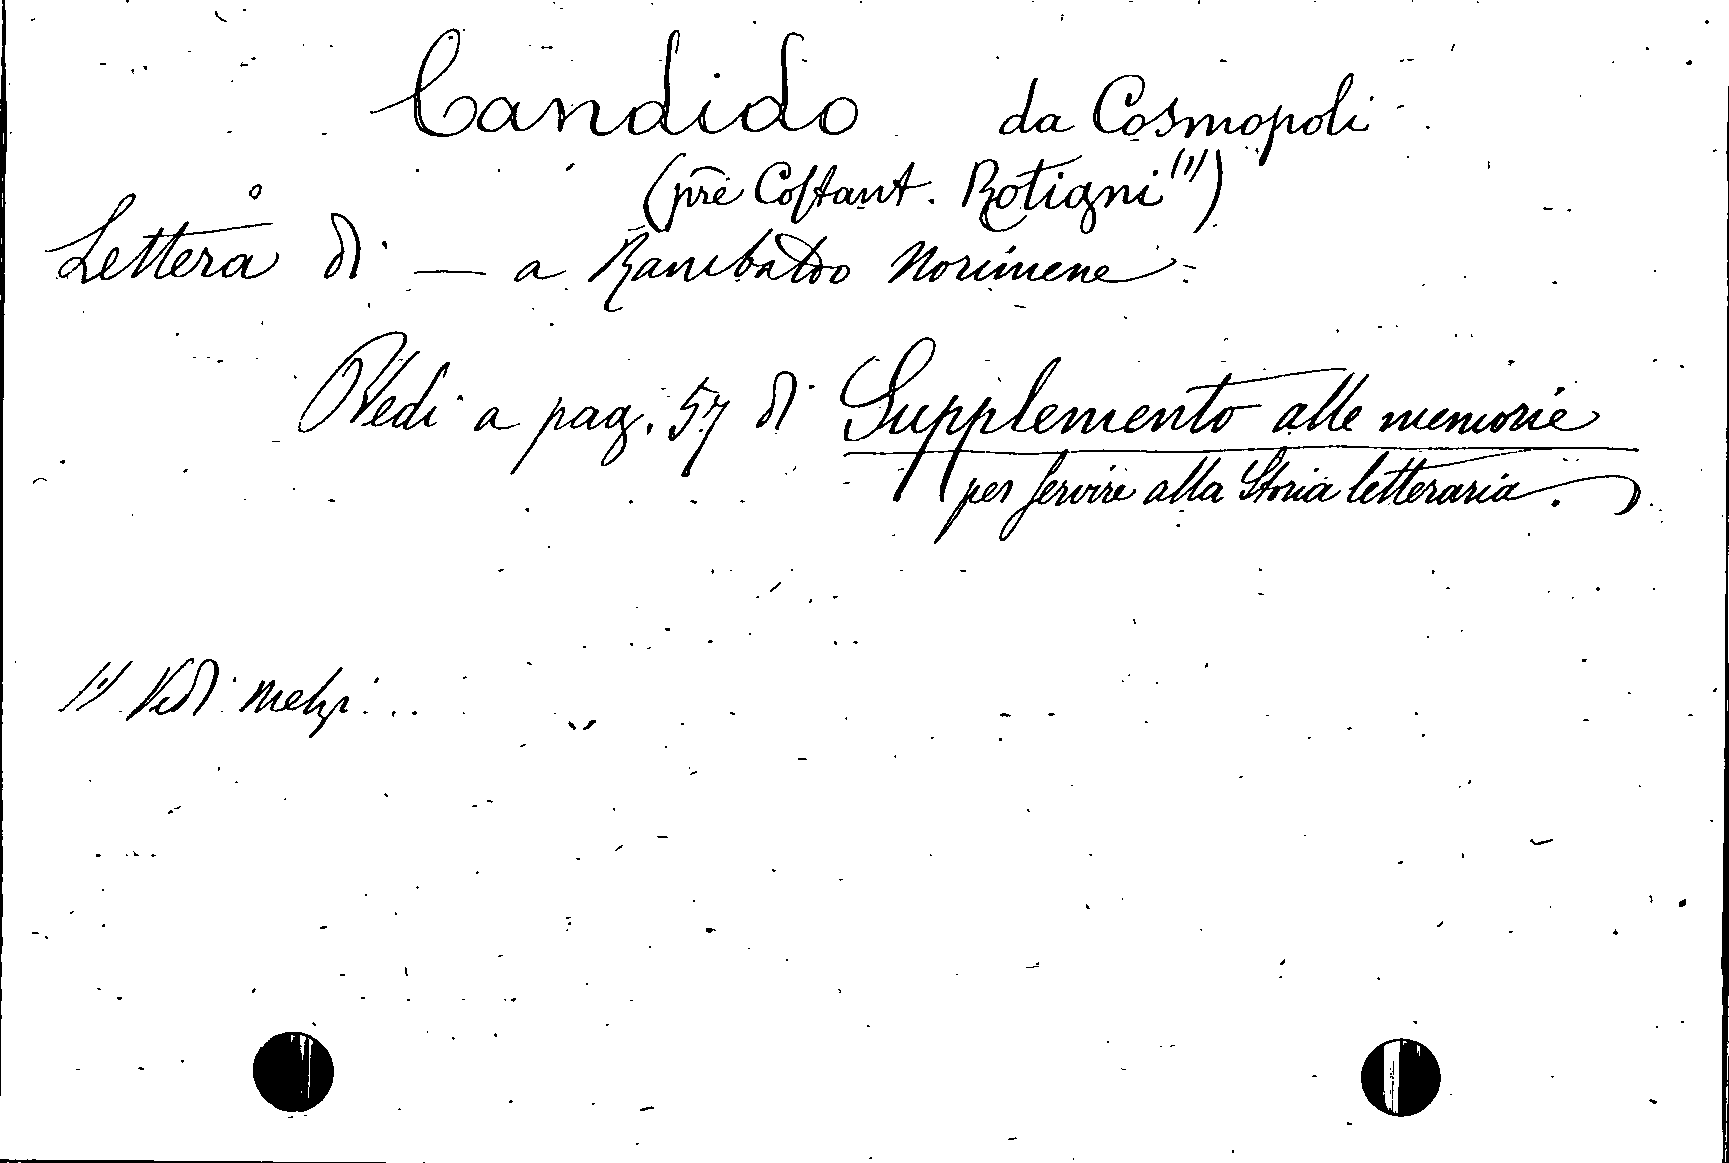 Candido da Cosmopoli
(pre Costant. Rotigni (1))
Lettera di — a Rambaldo Norimene.
Vedi a pag. 57 di Supplemento alle memorie
per servire alla Storia letteraria.
(1) Vedi Melzi